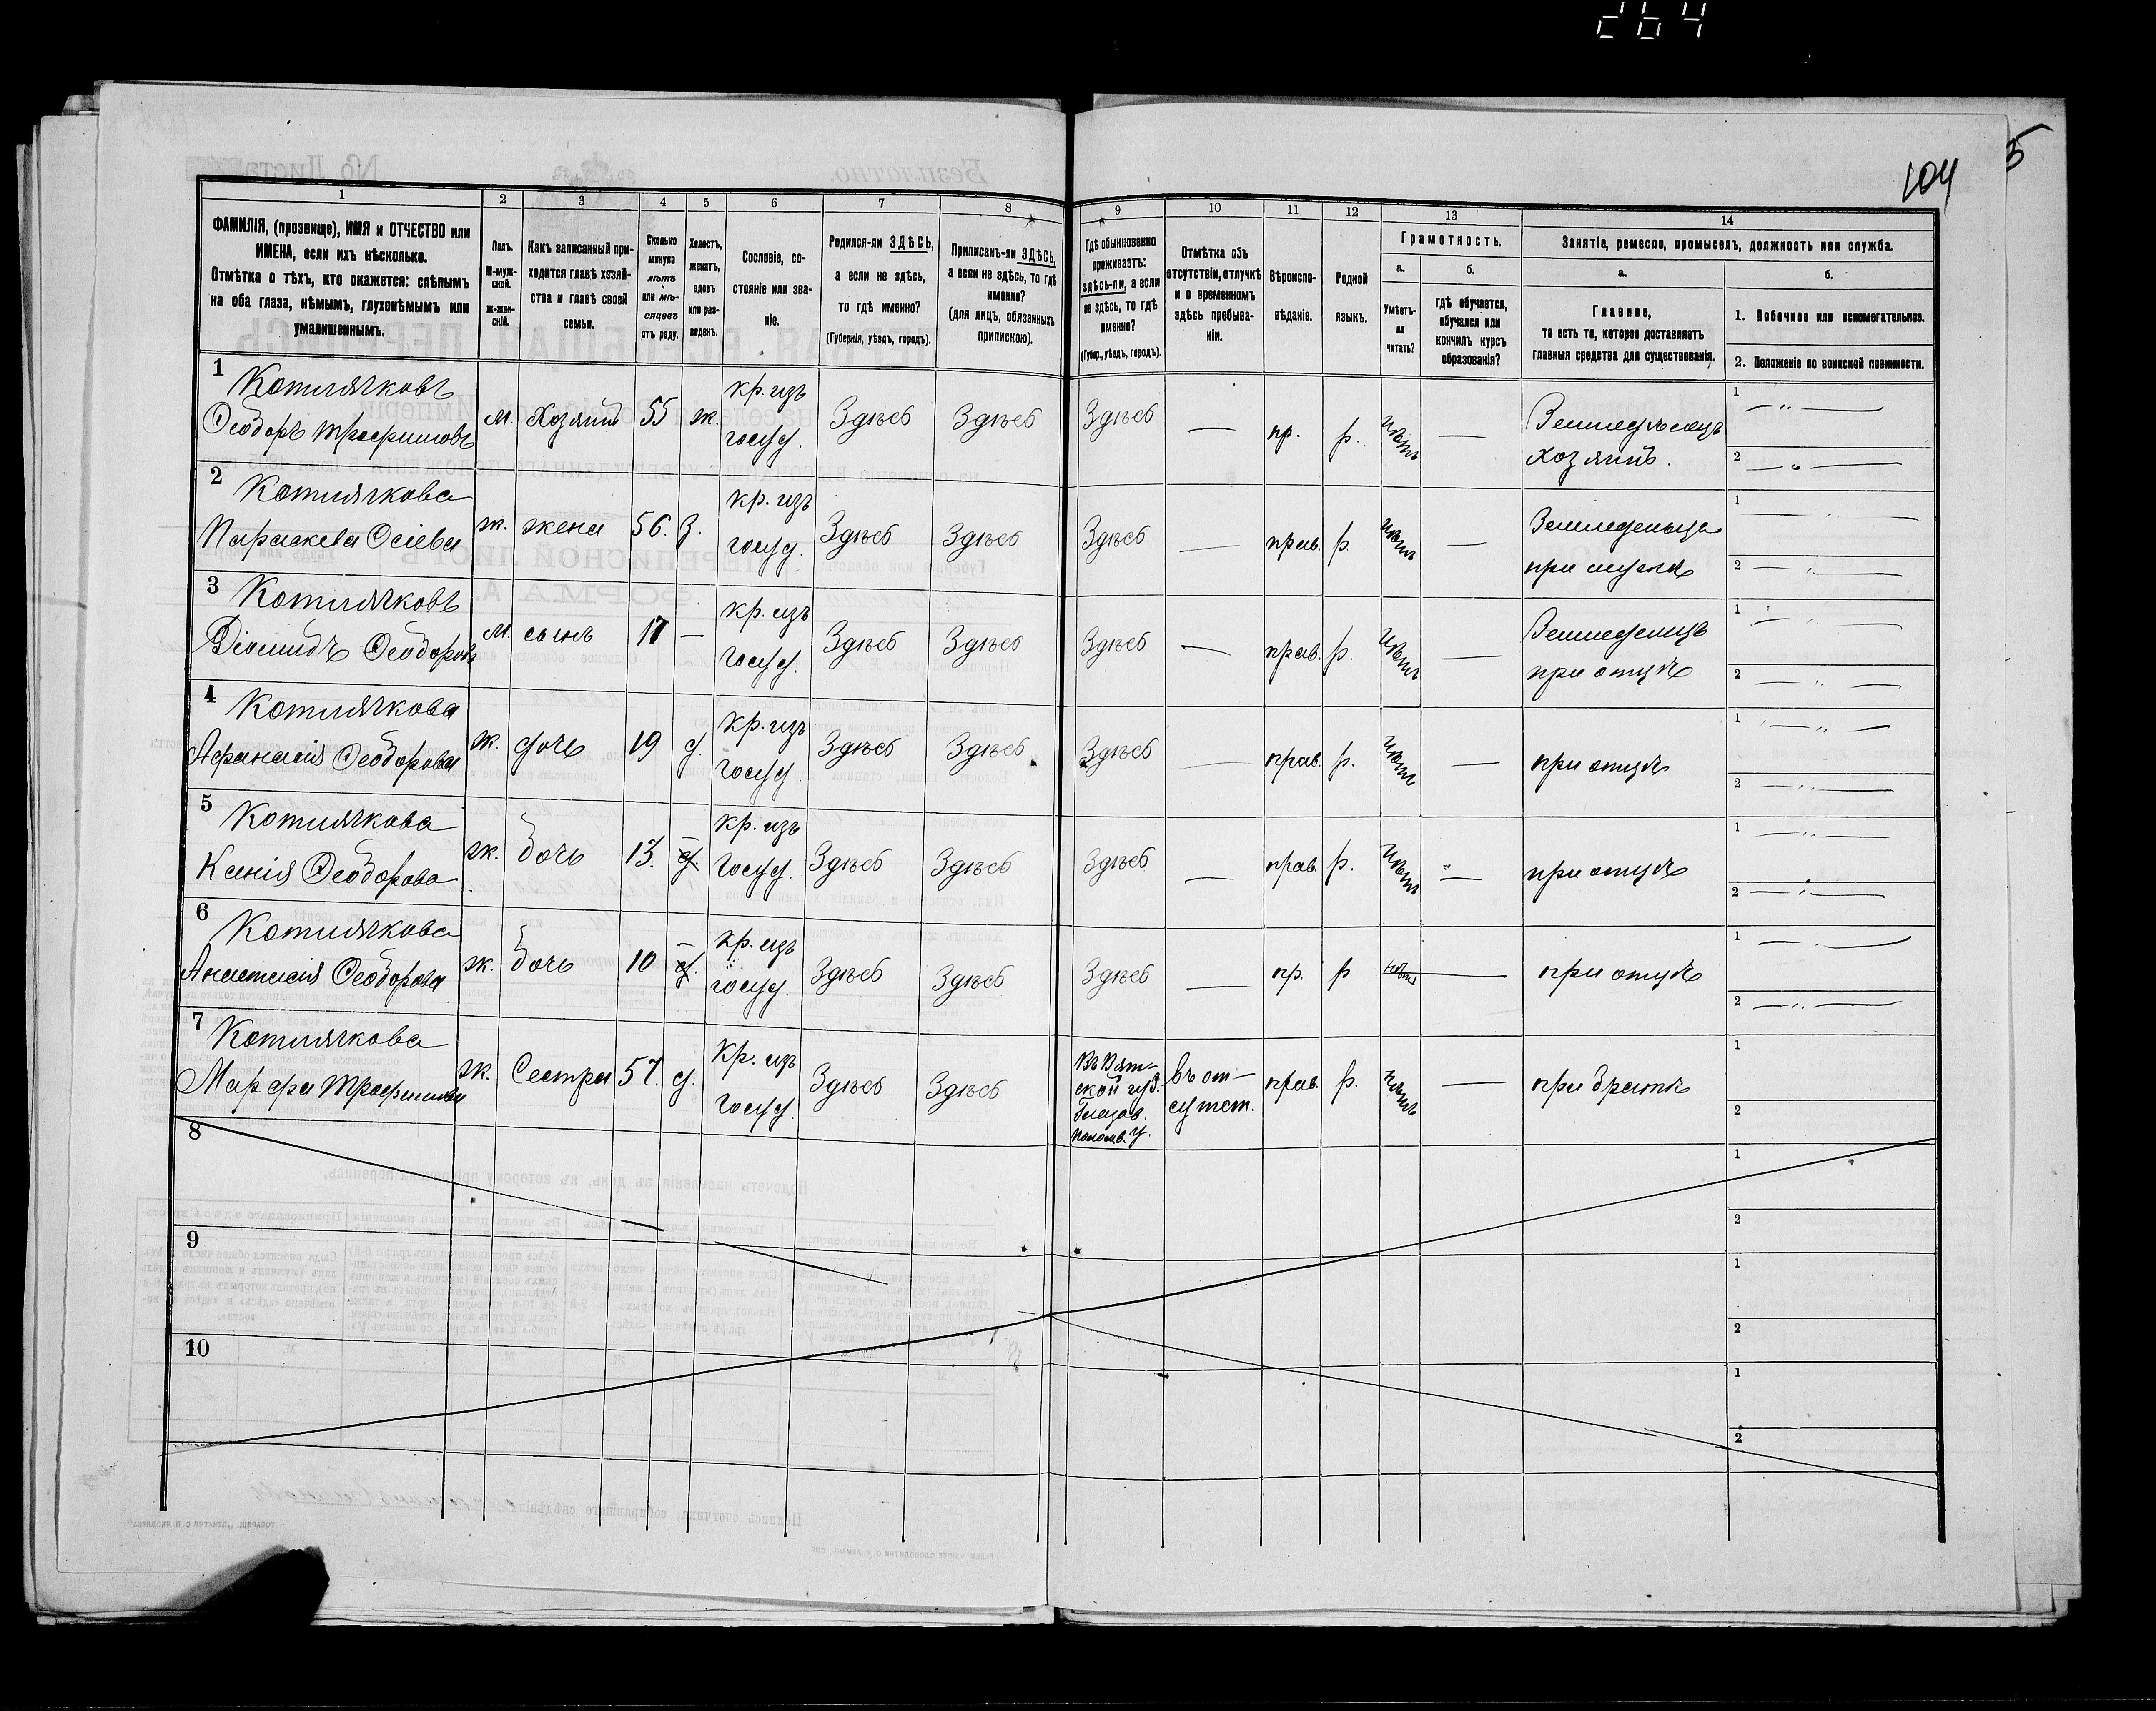 264
104
5
1 2 3 4 5 6 7 8 9 10 11 12 13 14
ФАМИЛІЯ, (прозвище), ИМЯ и ОТЧЕСТВО или
ИМЕНА, если ихъ нѣсколько.
Отмѣтка о тѣхъ, кто окажется: слѣпымъ
на оба глаза, нѣмымъ, глухонѣмымъ или
умалишеннымъ.
Полъ.
М-муж-
ской.
ж-жен-
скій.
Какъ записанный при-
ходится главѣ хозяй-
ства и главѣ своей
семьи.
Сколько
минуло
лѣтъ
или мѣ-
сяцевъ
отъ роду.
Холостъ,
женатъ,
вдовъ
или раз-
веденъ.
Сословіе, со-
стояніе или зва-
ніе.
Родился-ли ЗДѢСЬ,
а если не здѣсь,
то гдѣ именно?
(Губернія, уѣздъ, городъ).
Приписанъ-ли ЗДѢСЬ,
а если не здѣсь, то гдѣ
именно?
(для лицъ, обязанныхъ
припискою).
Гдѣ обыкновенно
проживаетъ:
здѣсь-ли, а если
не здѣсь, то гдѣ
именно?
(Губер., уѣздъ, городъ).
Отмѣтка объ
отсутствіи, отлучкѣ
и о временномъ
здѣсь пребыва-
ніи.
Вѣроиспо-
вѣданіе.
Родной
языкъ.
Грамотность.
а.
Умѣетъ-
ли
читать?
б.
гдѣ обучается,
обучался или
кончилъ курсъ
образованія?
Занятіе, ремесло, промыселъ, должность или служба.
а.
Главное,
то есть то, которое доставляетъ
главныя средства для существованія.
б.
1. Побочное или вспомогательное.
2. Положеніе по воинской повинности.
1 Котлячковъ
Ѳеодоръ Трофимовъ м. Хозяинъ 55 ж. кр. изъ
госуд. Здѣсь Здѣсь Здѣсь — пр. р. нѣтъ — Земледѣлецъ
хозяинъ. 1 — " — 2 — " —
2 Котлячкова
Параскева Осіева ж. жена 56. З. кр. изъ
госуд. Здѣсь Здѣсь Здѣсь — прав. р. нѣтъ — Земледелица
при мужѣ 1 — " — 2 — " —
3 Котлячковъ
Діомидъ Ѳеодоровъ м. сынъ 17 — кр. изъ
госуд. Здѣсь Здѣсь Здѣсь — прав. р. нѣтъ — Земледелецъ
при отцѣ 1 — " — 2 — " —
4 Котлячкова
Афанасія Ѳеодорова ж. дочь 19 д. кр. изъ
госуд. Здѣсь Здѣсь Здѣсь — прав. р. нѣтъ — при отцѣ 1 — " — 2 — " —
5 Котлячкова
Ксенія Ѳеодорова ж. дочь 13. — кр. изъ
госуд. Здѣсь Здѣсь Здѣсь — прав. р. нѣтъ — при отцѣ 1 — " — 2 — " —
6 Котлячкова
Анастасія Ѳеодорова ж. дочь 10 — кр. изъ
госуд. Здѣсь Здѣсь Здѣсь — пр. р нѣтъ — при отцѣ 1 — " — 2 — " —
7 Котлячкова
Марфа Трофимова ж. Сестра 57. д. Кр. изъ
госуд. Здѣсь Здѣсь Въ Вят-
ской губ.
Глазов.
Поломв. у. въ от-
сутст. прав. р. нѣтъ — при братѣ 1 2
8 1 2
9 1 2
10 1 2